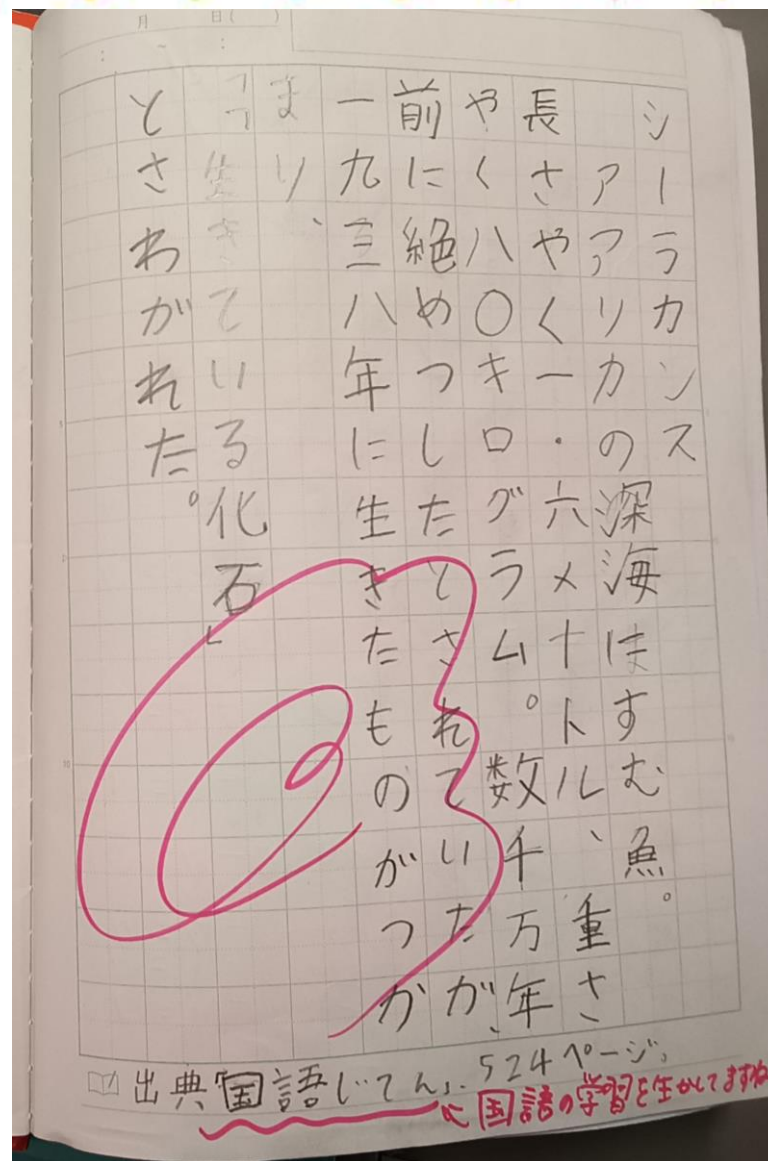 月 日( )
: ~ :
シーラカンス
アフリカの深海にすむ魚。
長さやく一・六メートル、重さ
やく八〇キログラム。数千万年
前に絶めつしたとされていたが、
一九三八年に生きたものがつか
まり、
「生きている化石」
とさわがれた。
出典『国語じてん』524ページ
国語の学習を生かしてますね